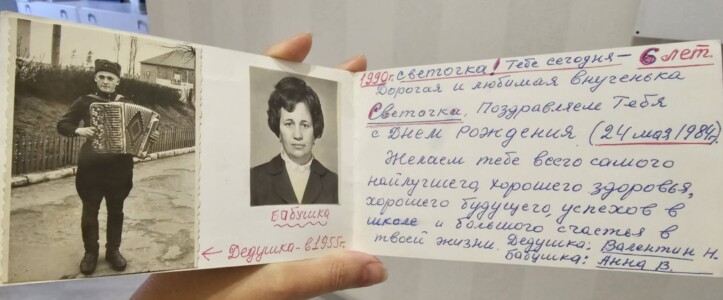 Бабушка
← Дедушка - в 1955г.
1990г. Светочка! Тебе сегодня - 6 лет.
Дорогая и любимая внученька
Светочка, Поздравляем Тебя
с Днем Рождения (24 мая 1984г)
Желаем тебе всего самого
наилучшего, хорошего здоровья,
хорошего будущего, успехов в
школе и большого счастья в
твоей жизни. Дедушка: Валентин Н.
бабушка: Анна В.